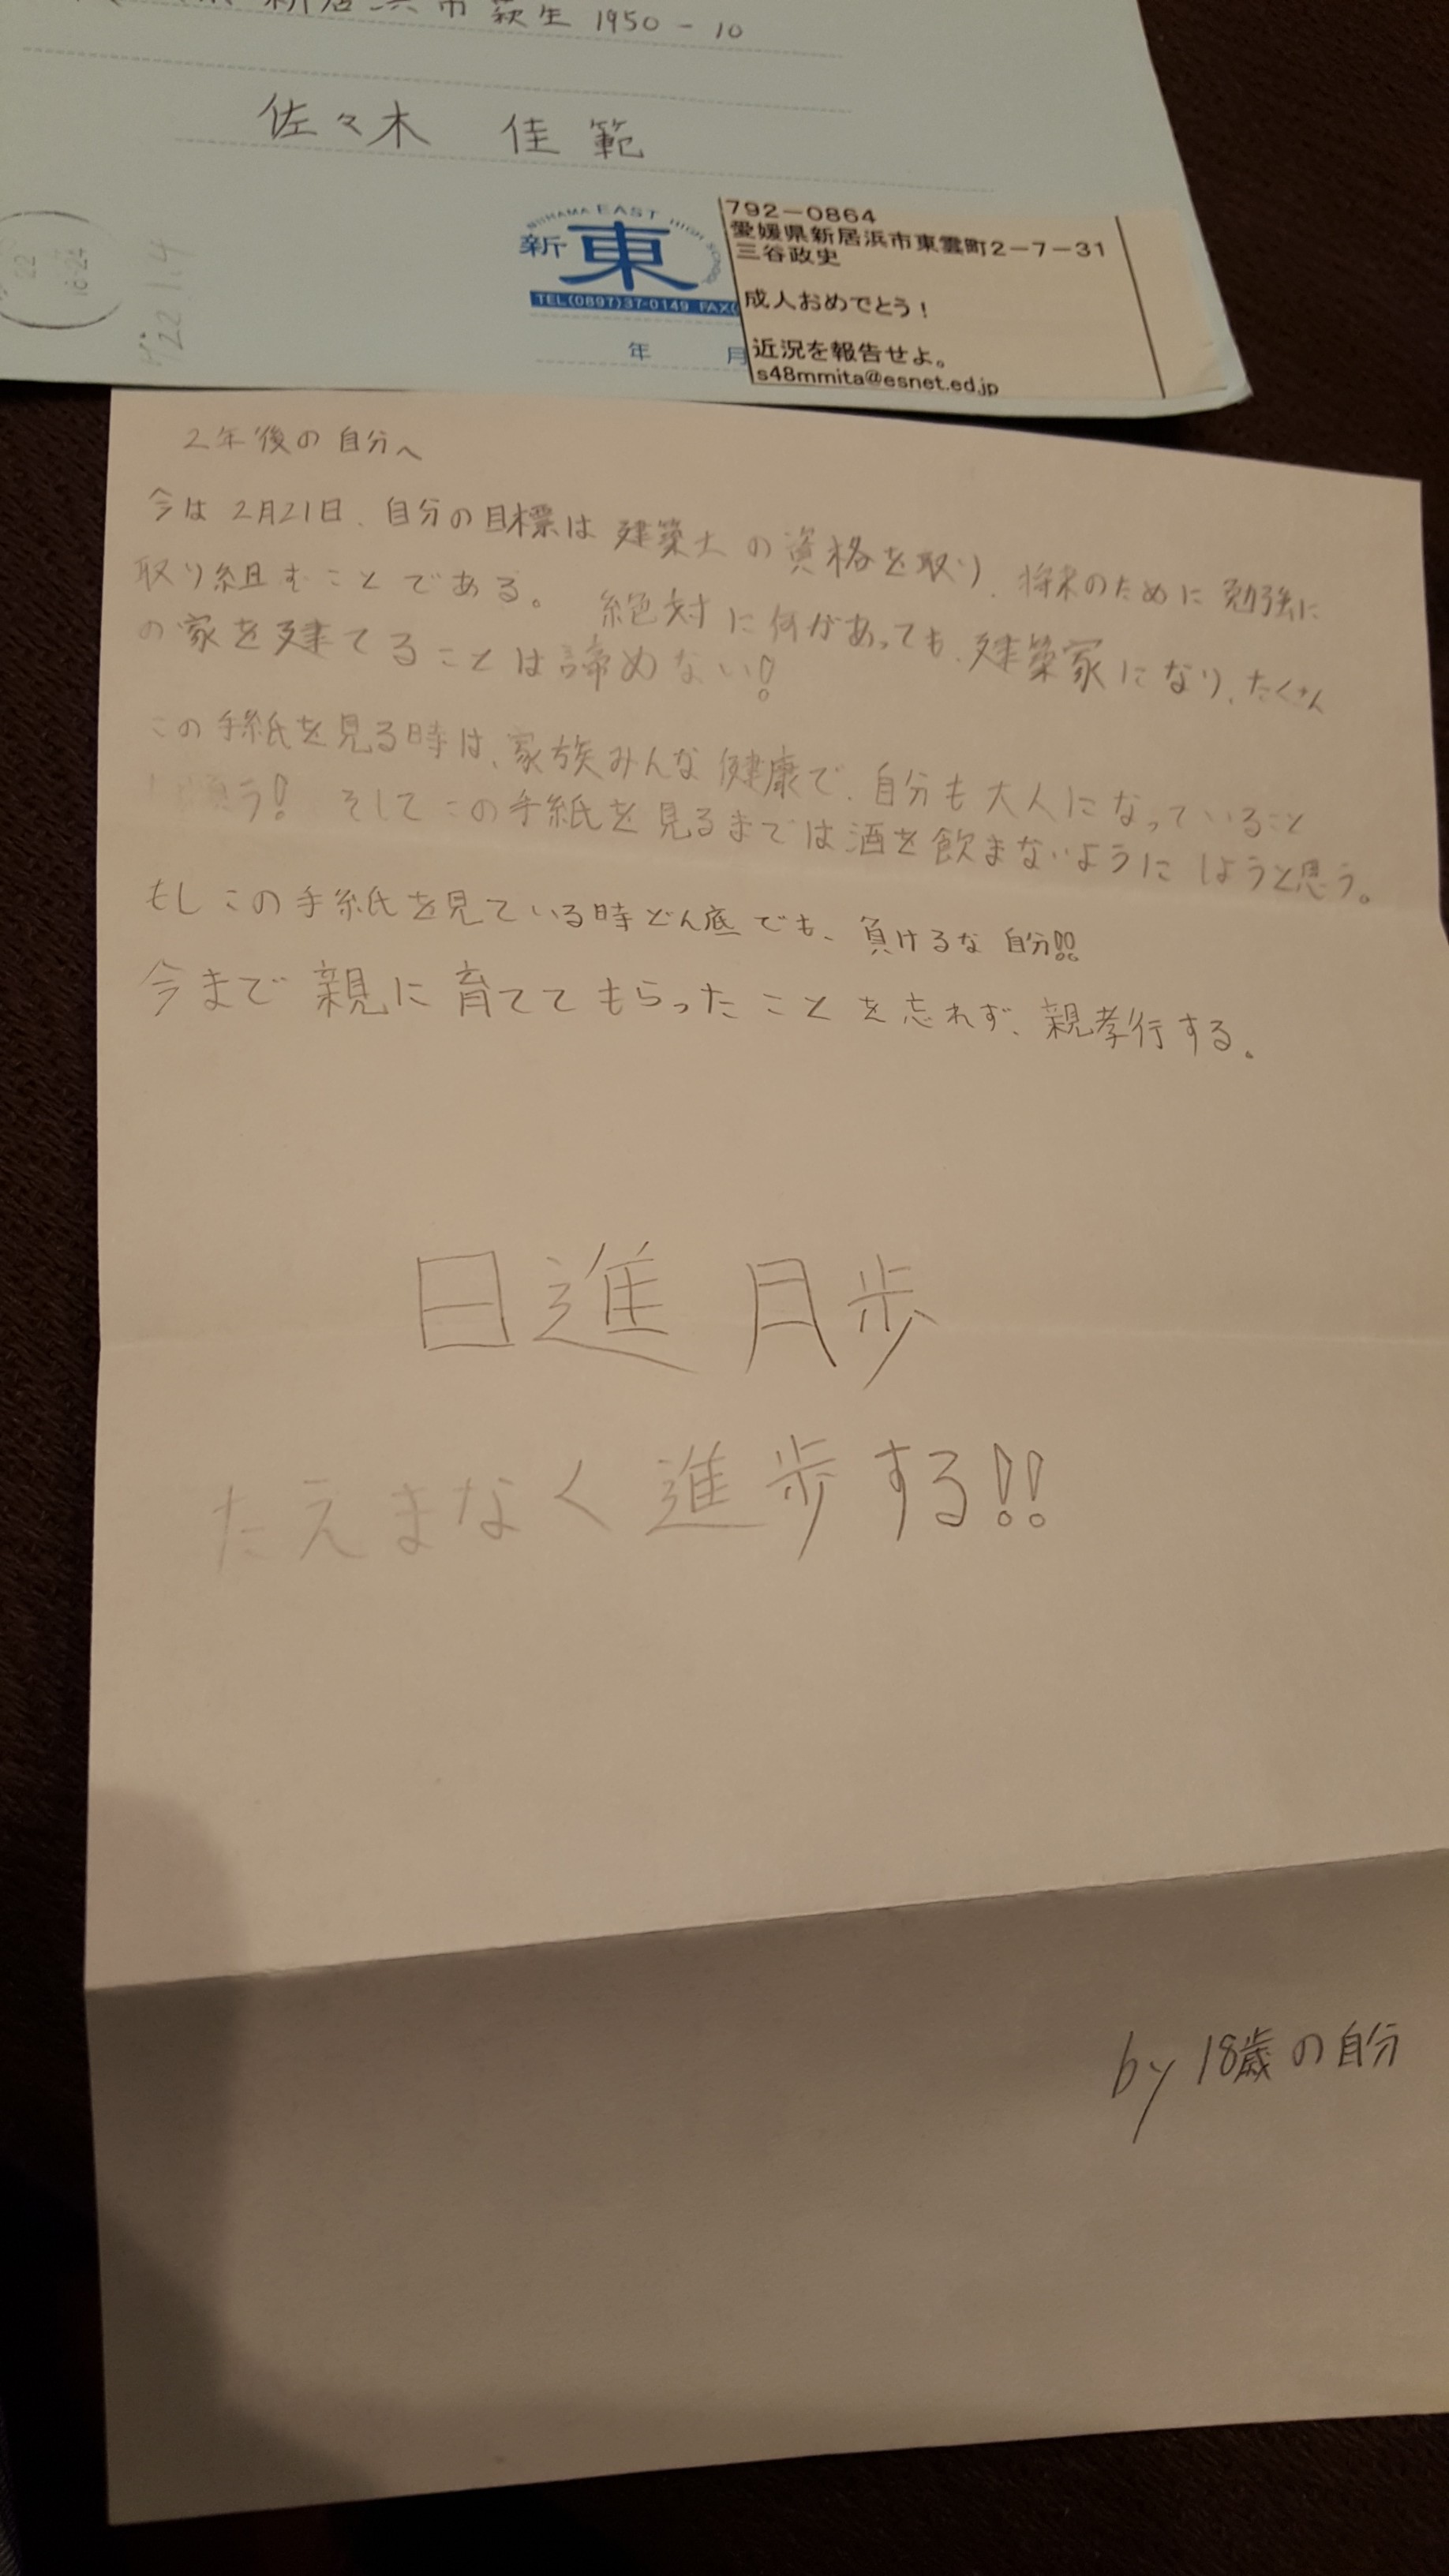 新居浜市萩生 1950-10
佐々木 佳範
NIIHAMA EAST HIGH SCHOOL
新東
TEL(0897)37-0149 FAX(
年 月
792-0864
愛媛県新居浜市東雲町2-7-31
三谷政史
成人おめでとう!
近況を報告せよ。
s48mmita@esnet.ed.jp
'22 1.4
2年後の自分へ
今は2月21日、自分の目標は建築士の資格を取り、将来のために勉強に
取り組むことである。 絶対に何があっても、建築家になり、たくさん
の家を建てることは諦めない!
この手紙を見る時は、家族みんな健康で、自分も大人になっていること
を願う! そしてこの手紙を見るまでは酒を飲まないようにしようと思う。
もしこの手紙を見ている時どん底でも、負けるな自分!!
今まで親に育ててもらったことを忘れず、親孝行する。
日進月歩
たえまなく進歩する!!
by 18歳の自分